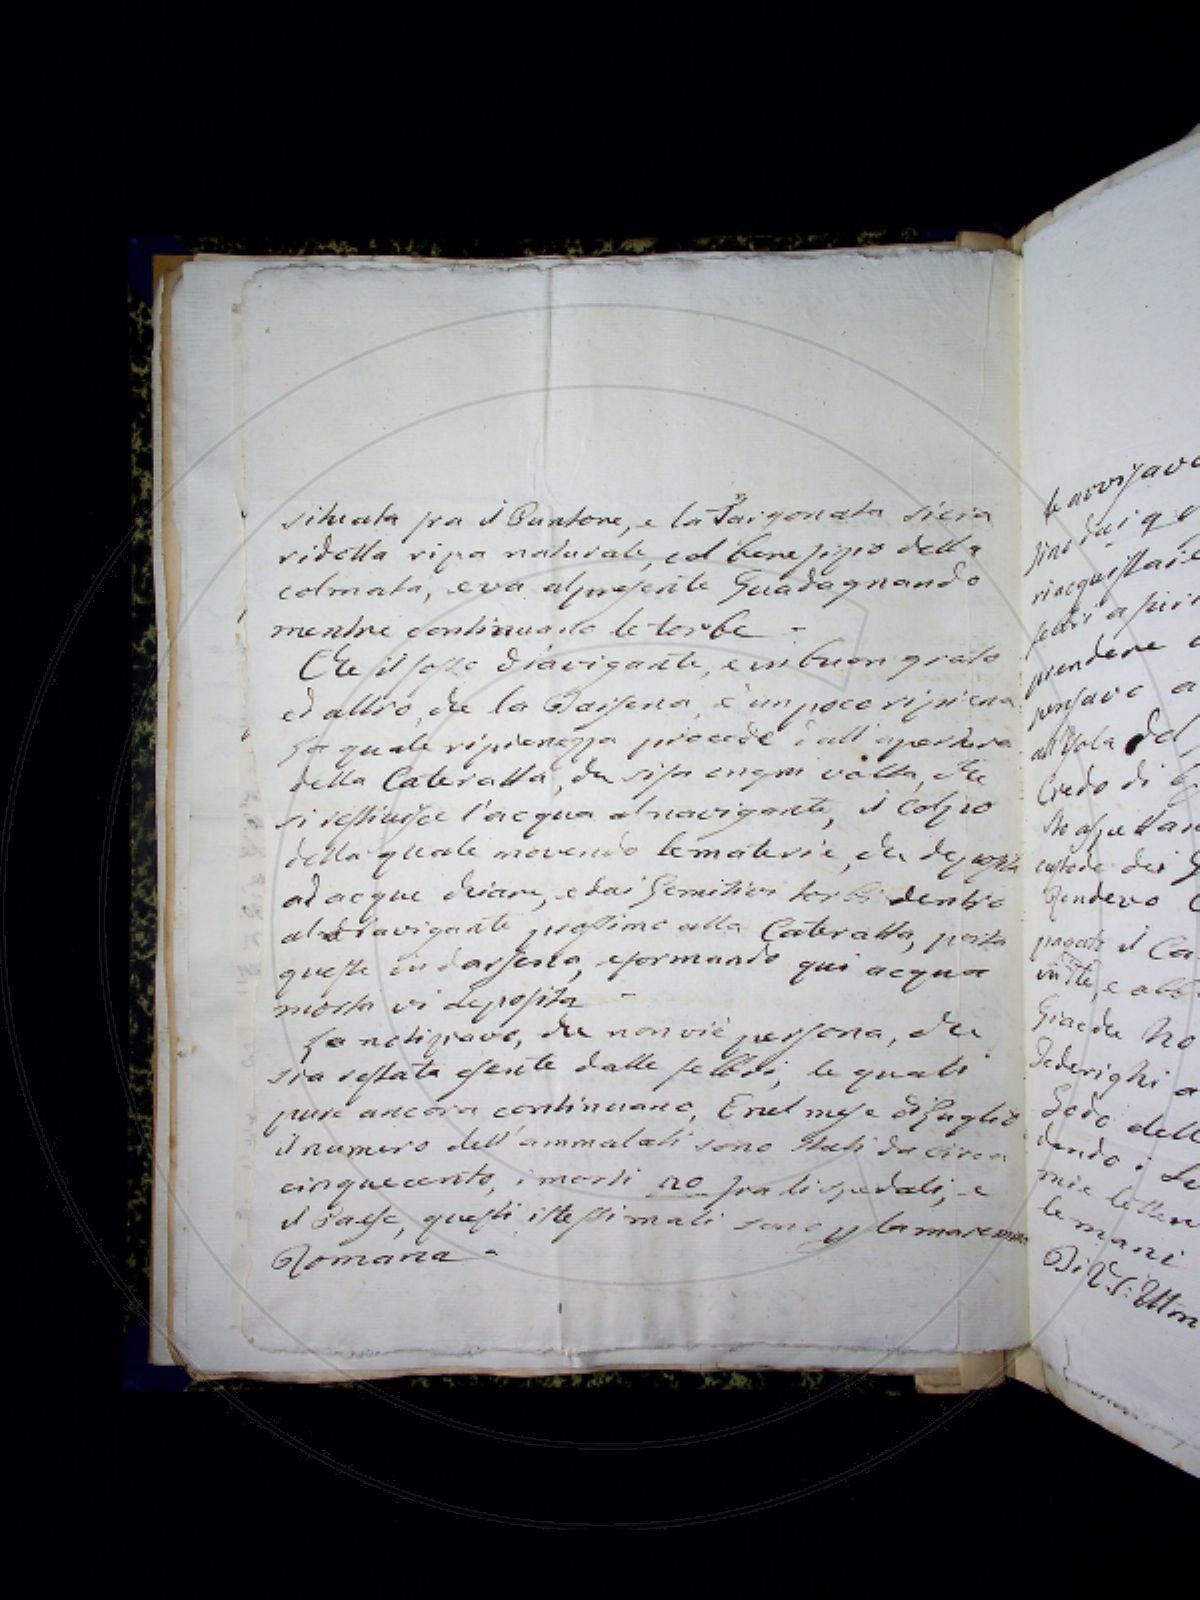 situata fra il Puntone, e la Targonata siera
ridotta ripa naturale, col benefizio della
colmata, e va al presente Guadagnando
mentre continuano le torbe -
Che il fosso Navigante, e in buon grato
ed altro, che la Darsena, è un poco ripiena
La quale ripienezza procede dall'apertura
della Cateratta, che si fa ongni volta, che
si restituisce l'acqua al navigante, il Colpo
della quale movendo le materie, che deposita
ad acque chiare, e dai torbi dentro
al Navigante prossimo alla Cateratta, porta
queste in darsena, e formando qui acqua
morta vi deposita -
La notiziavo, che non viè persona, che
sia restata esente dalle febbri, le quali
pure ancora continuano, E nel mese di Luglio
il numero dell'ammalati sono stati da circa
cinquecento, i morti 20 fra li spedali, e
il Paese, questi istessi mali sono p la maremma
Romana -
le avvisavo
sino dai
riacquistare
prendere
pensavo a
all'Isola del
Credo di
Sto aspettan
custode dei
Rendevo
pagati il Ca
viste, e abb
Giache ho
Federighi a
Godo dell
dando
mie lettere
le mani
Di V. S. Illm